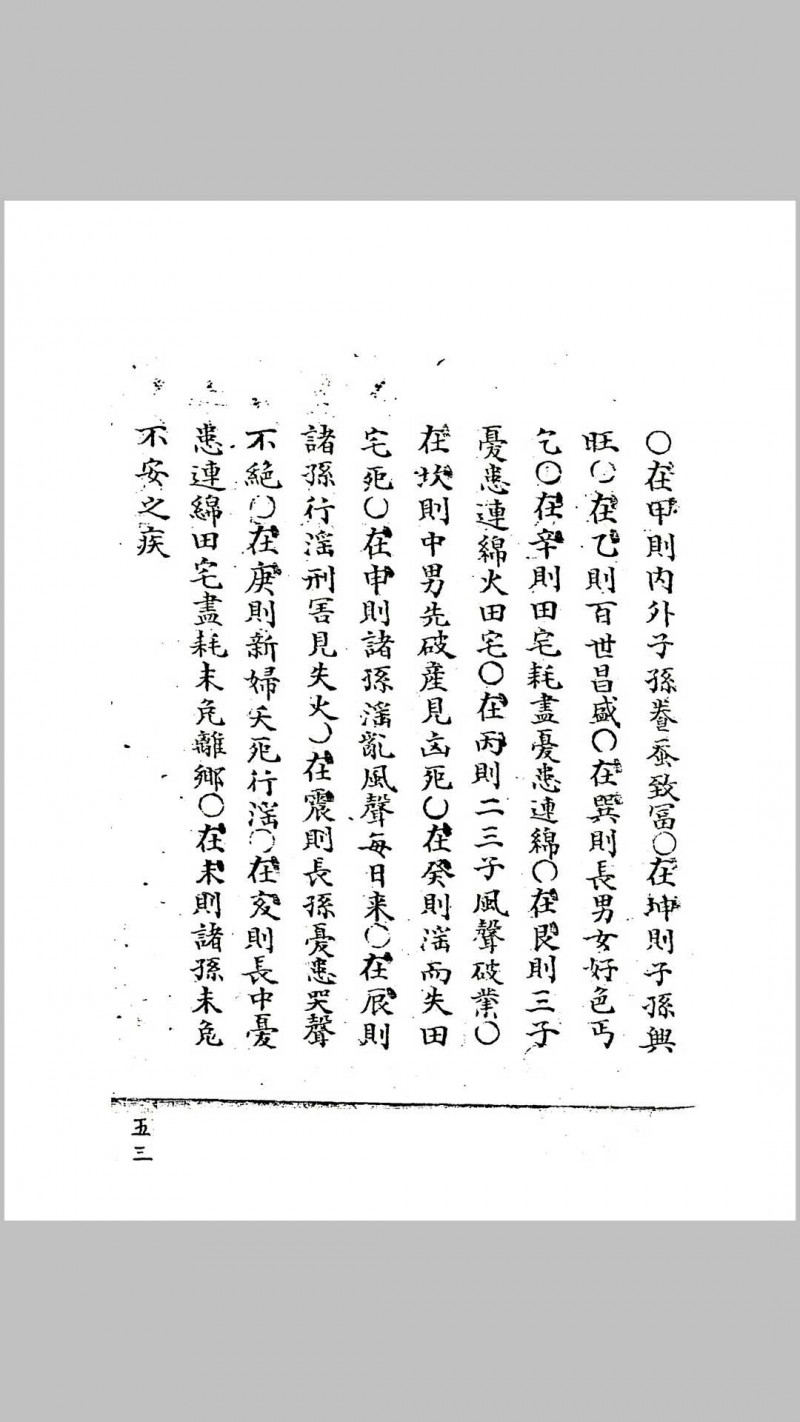 〇在甲則内外子孫養蚕致冨〇在坤則子孫興
旺〇在乙則百世昌盛〇在巽則長男女好色丐
乞〇在辛則田宅耗盡憂患連綿〇在艮則三子
憂患連綿火田宅〇在丙則二三子風聲破業〇
在坎則中男先破産見凶死〇在癸則滛而失田
宅死〇在申則諸孫滛亂風聲每日来〇在辰則
諸孫行滛刑害見失火〇在震則長孫憂患哭聲
不絶〇在庚則新婦夭死行滛〇在亥則長中憂
患連綿田宅盡耗未免離鄉〇在未則諸孫未免
不安之疾
五三